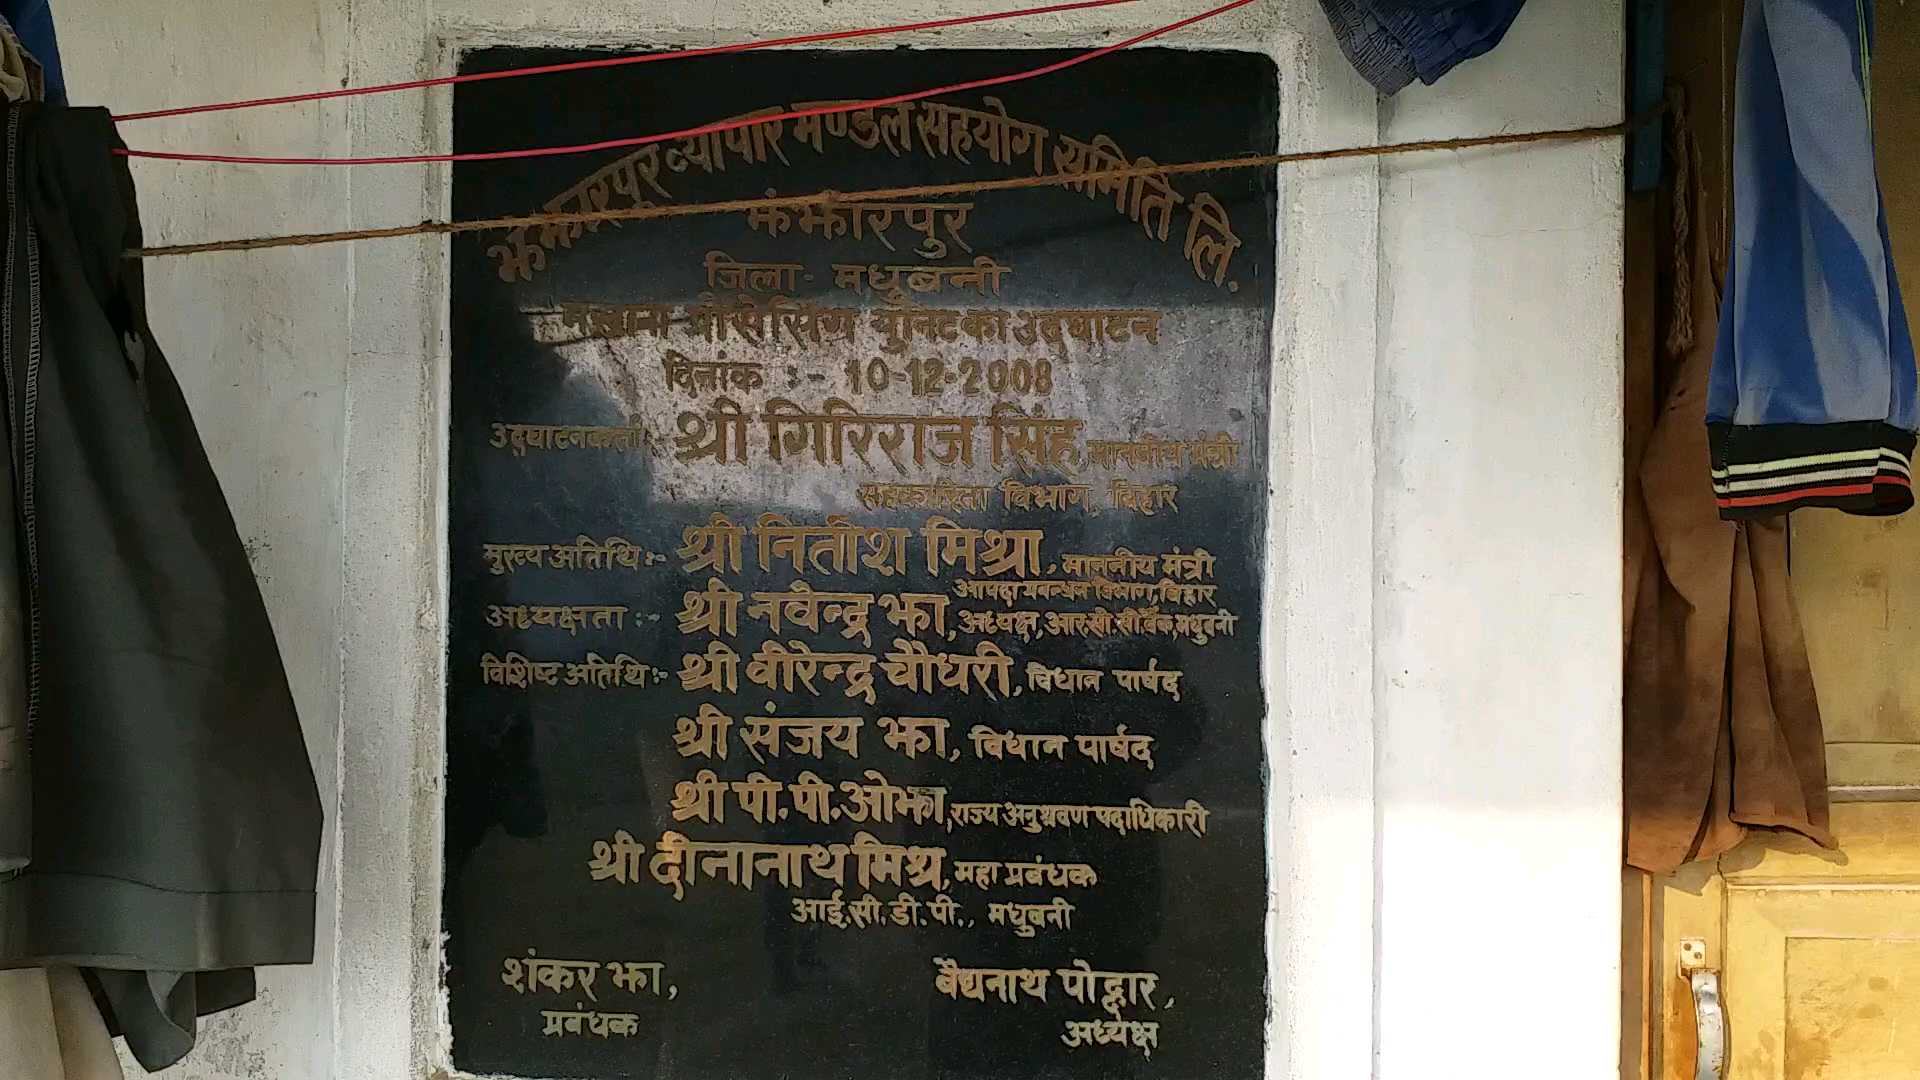 झंझारपुर व्यापार मण्डल सहयोग समिति लि.
झंझारपुर
जिला - मधुबनी
मखाना प्रोसेसिंग युनिट का उद्घाटन
दिनांक :- 10-12-2008
उद्घाटनकर्ता :- श्री गिरिराज सिंह, माननीय मंत्री
सहकारिता विभाग, बिहार
मुख्य अतिथि :- श्री नितीश मिश्रा, माननीय मंत्री
आपदा प्रबन्धन विभाग, बिहार
अध्यक्षता :- श्री नवेन्द्र झा, अध्यक्ष, आर.सी.सी.बैंक, मधुबनी
विशिष्ट अतिथि :- श्री वीरेन्द्र चौधरी, विधान पार्षद
श्री संजय झा, विधान पार्षद
श्री पी.पी.ओझा, राज्य अनुश्रवण पदाधिकारी
श्री दीनानाथ मिश्र, महा प्रबंधक
आई.सी.डी.पी., मधुबनी
शंकर झा, बैद्यनाथ पोद्दार,
प्रबंधक अध्यक्ष